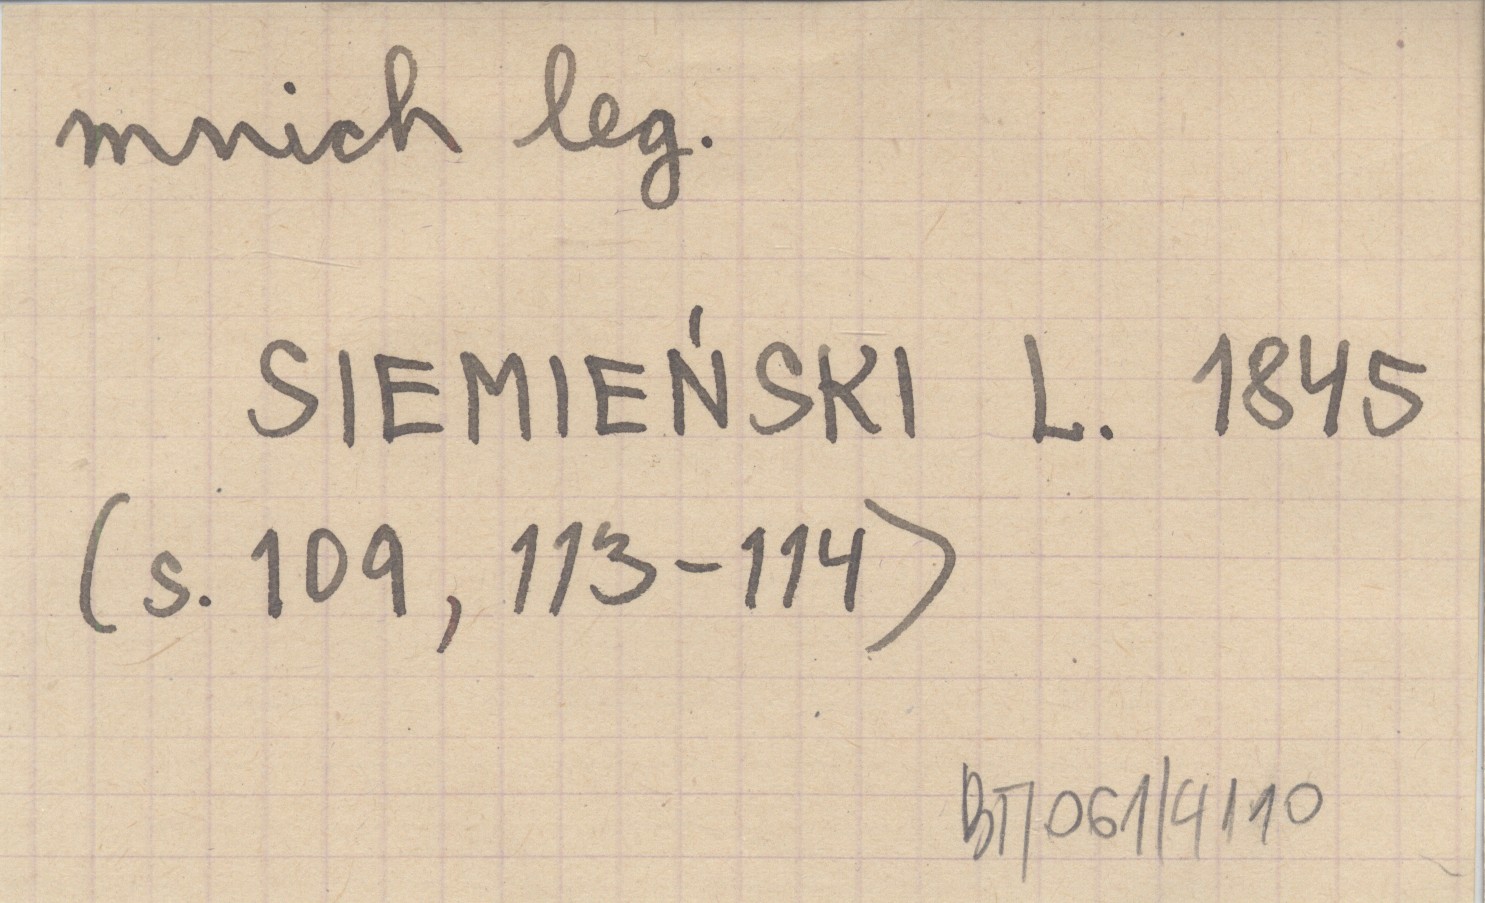 mnich leg.
SIEMIEŃSKI L. 1845
(s. 109, 113-114)
ВП/061/4/10